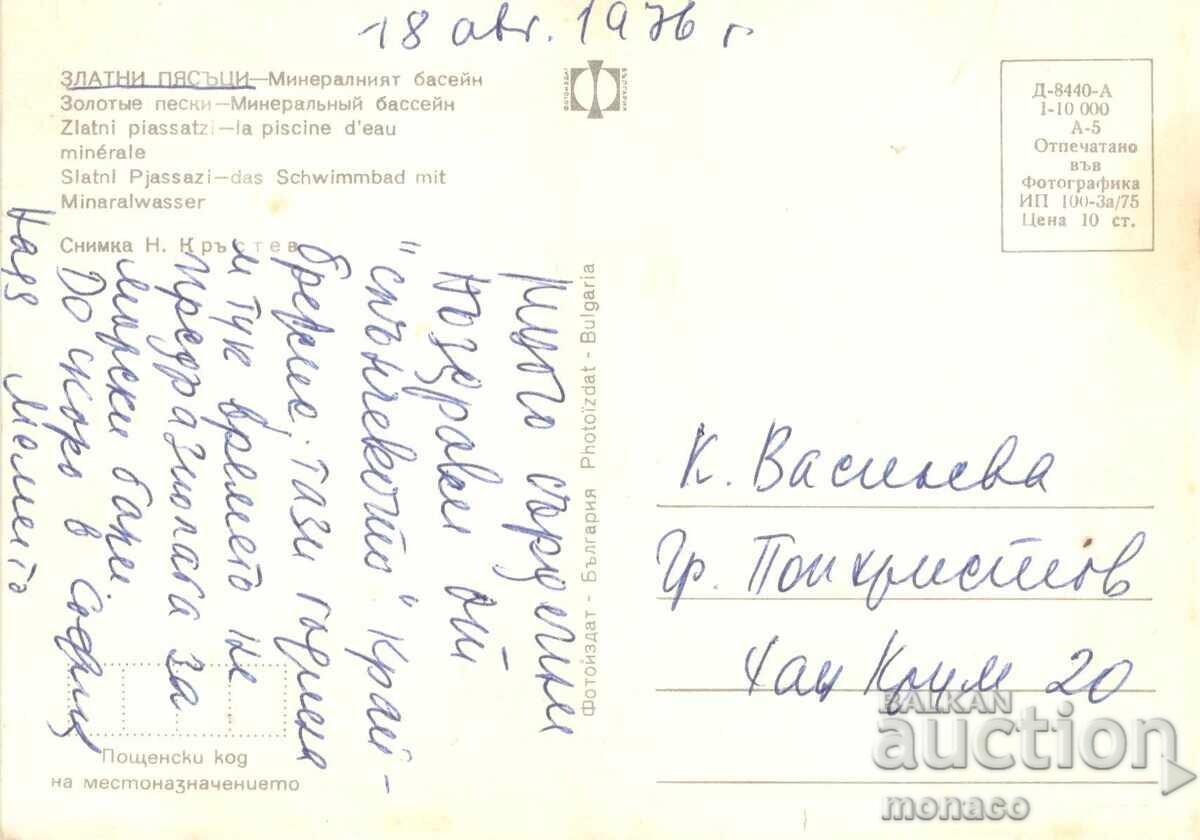 18 авг. 1976 г
ЗЛАТНИ ПЯСЪЦИ—Минералният басейн
Золотые пески—Минеральный бассейн
Zlatni piassatzi—la piscine d'eau
minérale
Slatni Pjassazi—das Schwimmbad mit
Minaralwasser
Снимка Н. Кръстев
ФОТОИЗДАТ
БЪЛГАРИЯ
Д-8440-А
1-10 000
А-5
Отпечатано
във
Фотографика
ИП 100-3а/75
Цена 10 ст.
Много сърдечни
поздрави от
"слънчевото" край-
брежие. Тази година
и тук времето не
предразполага за
морски бани.
До скоро в София
Надя
Фотоиздат - България Photoïzdat - Bulgaria
К. Василева
Гр. Попхристов
Хан Крум 20
Пощенски код
на местоназначението
BALKAN
auction
monaco